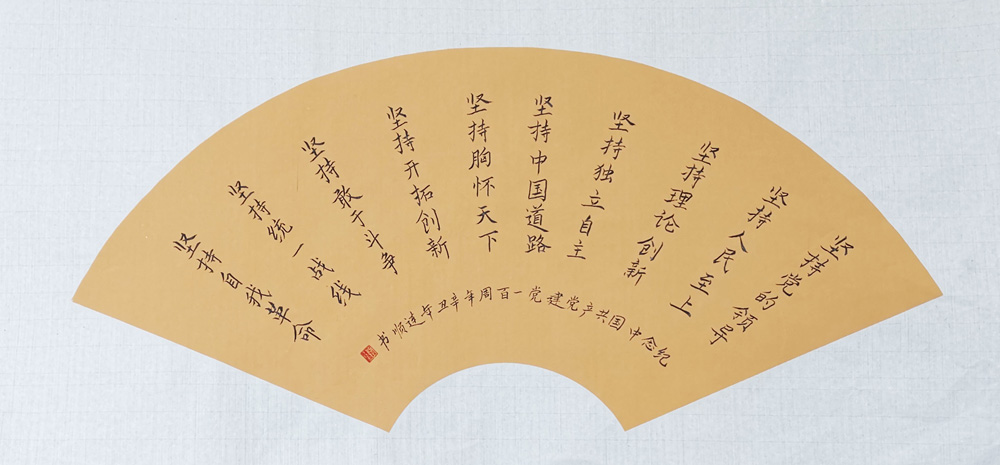 坚持党的领导
坚持人民至上
坚持理论创新
坚持独立自主
坚持中国道路
坚持胸怀天下
坚持开拓创新
坚持敢于斗争
坚持统一战线
坚持自我革命
纪念中国共产党建党一百周年辛丑年连顺书